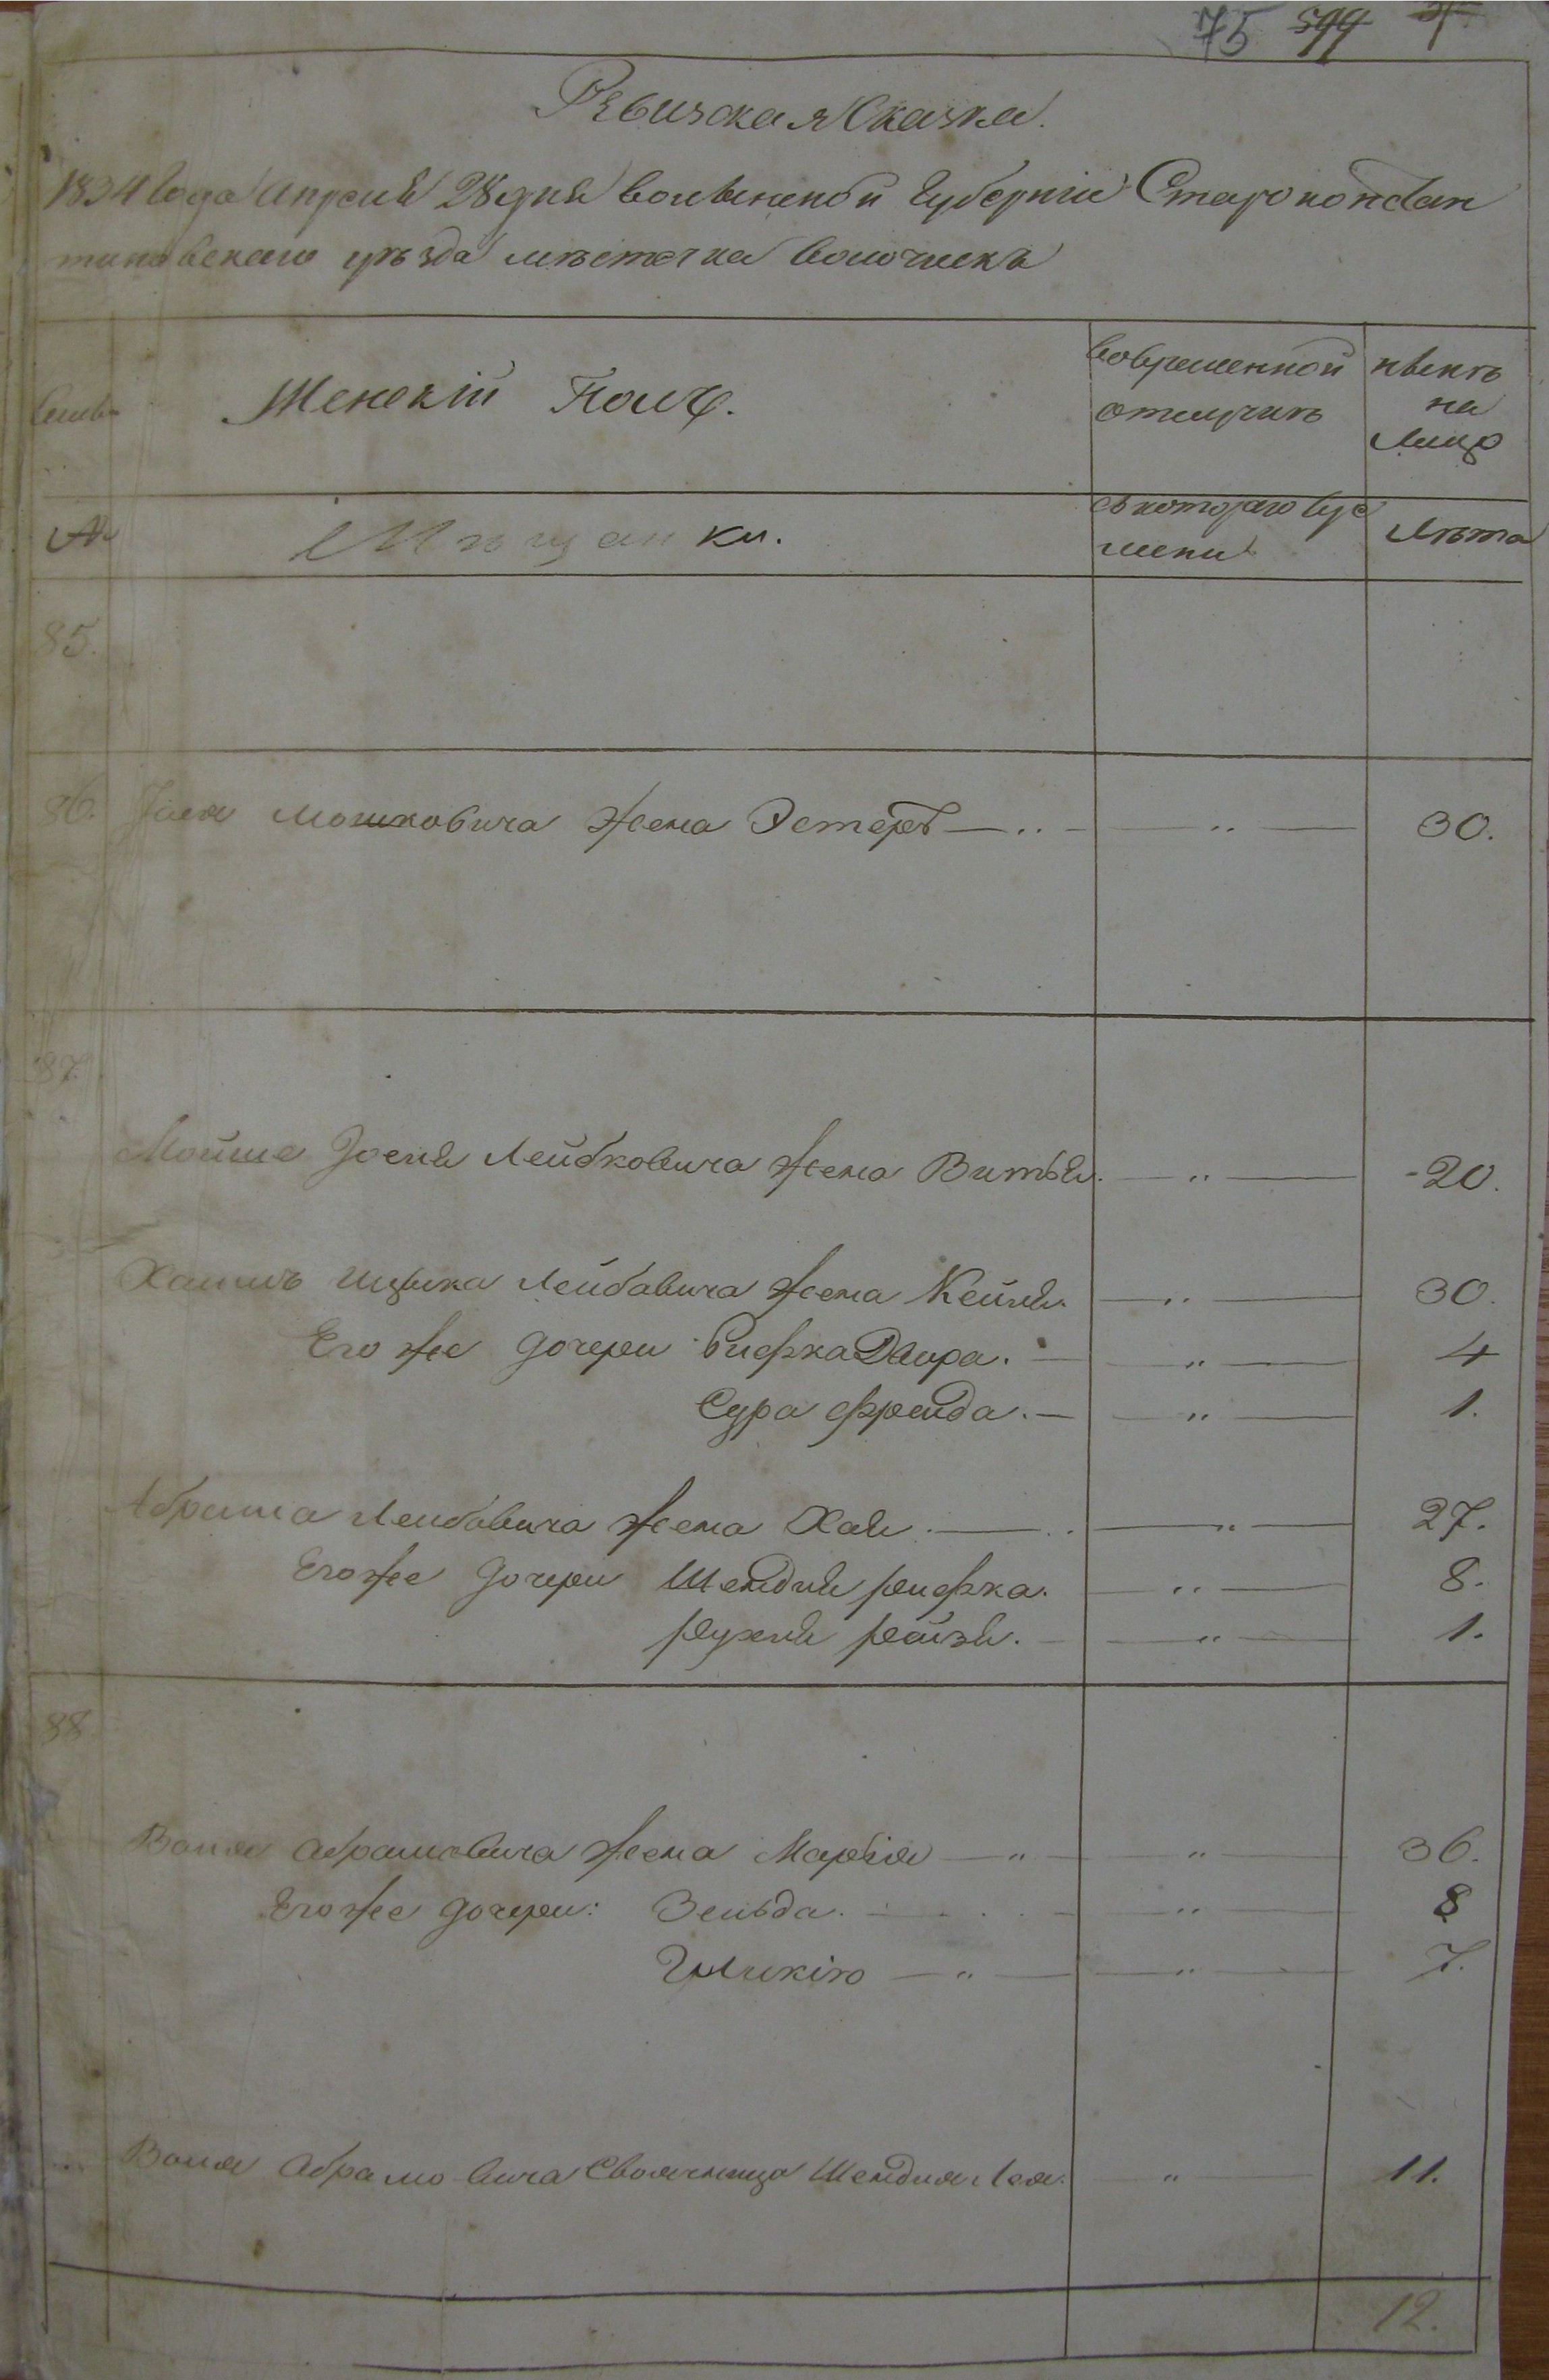 75 599
Ревизская Сказка.
1834 Года Апреля 28 дня Волынской Губерніи Староконстан
тиновскаго уѣзда мѣстечка Волочискъ
Семьи
Женскій Полъ.
вовременной
отлучкѣ
нынѣ
на
Лицо
№
Мѣщанки.
съкотораго вре
мени
Лѣта
85.
86. Мошковича жена Эстеръ — 30.
87.
Мойше Іося Лейбковича жена Витя. — 20.
Хаимъ Ицыка Лейбавича жена Кейля. — 30.
Его же дочери Рифка Двора. — 4
Сура Фрейда. — 1.
Абрама Лейбовича жена Хая. — 27.
Его же дочери Шендля рифка. — 8.
рухля райзя. — 1.
88.
Абрамовича жена — 36.
Его же дочери: Зельда. — 8
7.
Абрамовича Своячница Шендля Лея. 11.
12.